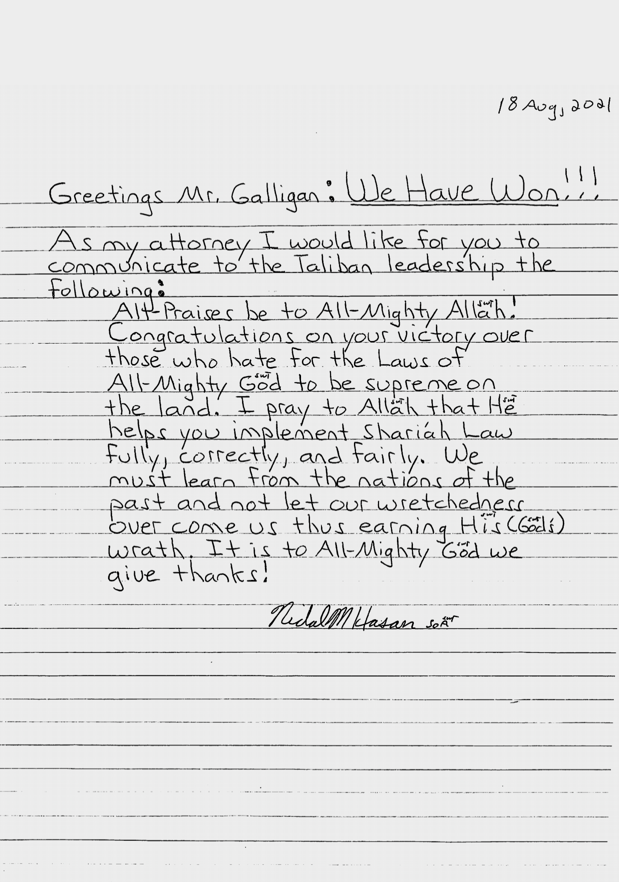 18 Aug, 2021
Greetings Mr. Galligan: We Have Won!!!
As my attorney I would like for you to
communicate to the Taliban leadership the
following:
All-Praises be to All-Mighty Allah!
Congratulations on your victory over
those who hate for the Laws of
All-Mighty God to be supreme on
the land. I pray to Allah that He
helps you implement Shariah Law
fully, correctly, and fairly. We
must learn from the nations of the
past and not let our wretchedness
over come us thus earning His (God's)
wrath. It is to All-Mighty God we
give thanks!
Nidal M Hasan SoA